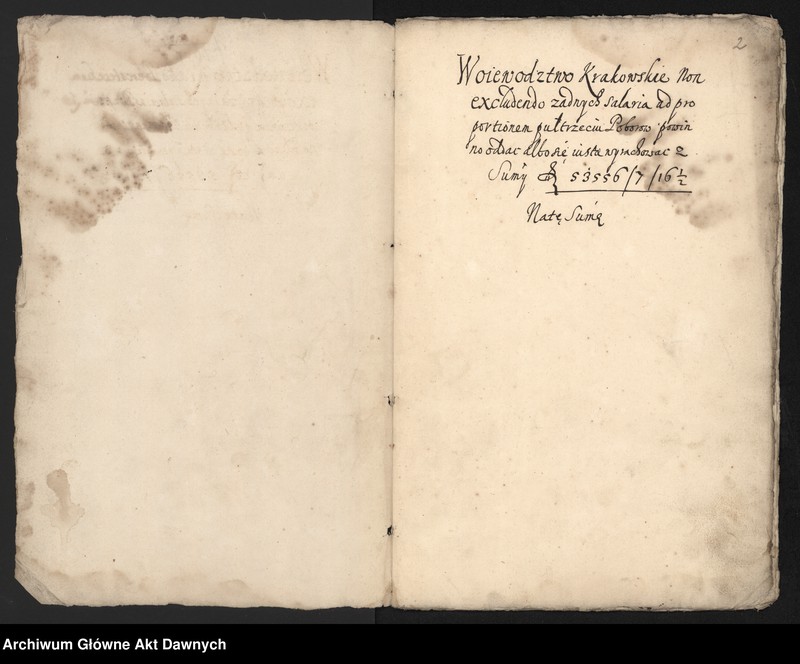 2
Woiewodztwo Krakowskie Non
excludendo zadnych Salaria ad pro
portionem pułtrzeciu Poborow powin
no oddac albo się wyrachowac z
Sumy 53556/7/16 1/2
Natę Sumą
Archiwum Główne Akt Dawnych